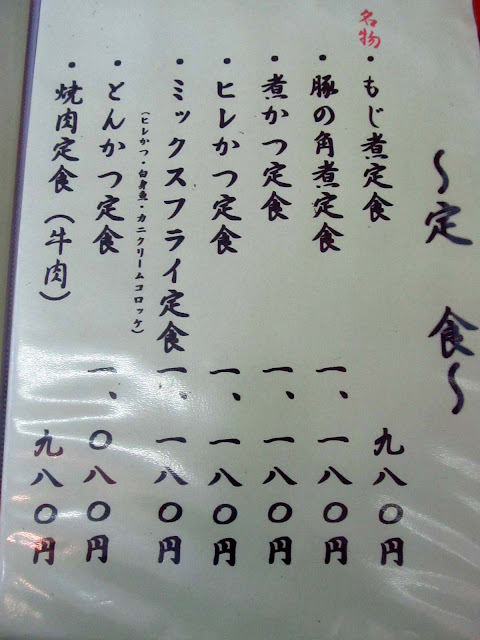 ～定食～
名物
・もじ煮定食 九八〇円
・豚の角煮定食 一、一八〇円
・煮かつ定食 一、一八〇円
・ヒレかつ定食 一、一八〇円
・ミックスフライ定食 一、一八〇円
（ヒレかつ・白身魚・カニクリームコロッケ）
・とんかつ定食 一、〇八〇円
・焼肉定食（牛肉） 九八〇円